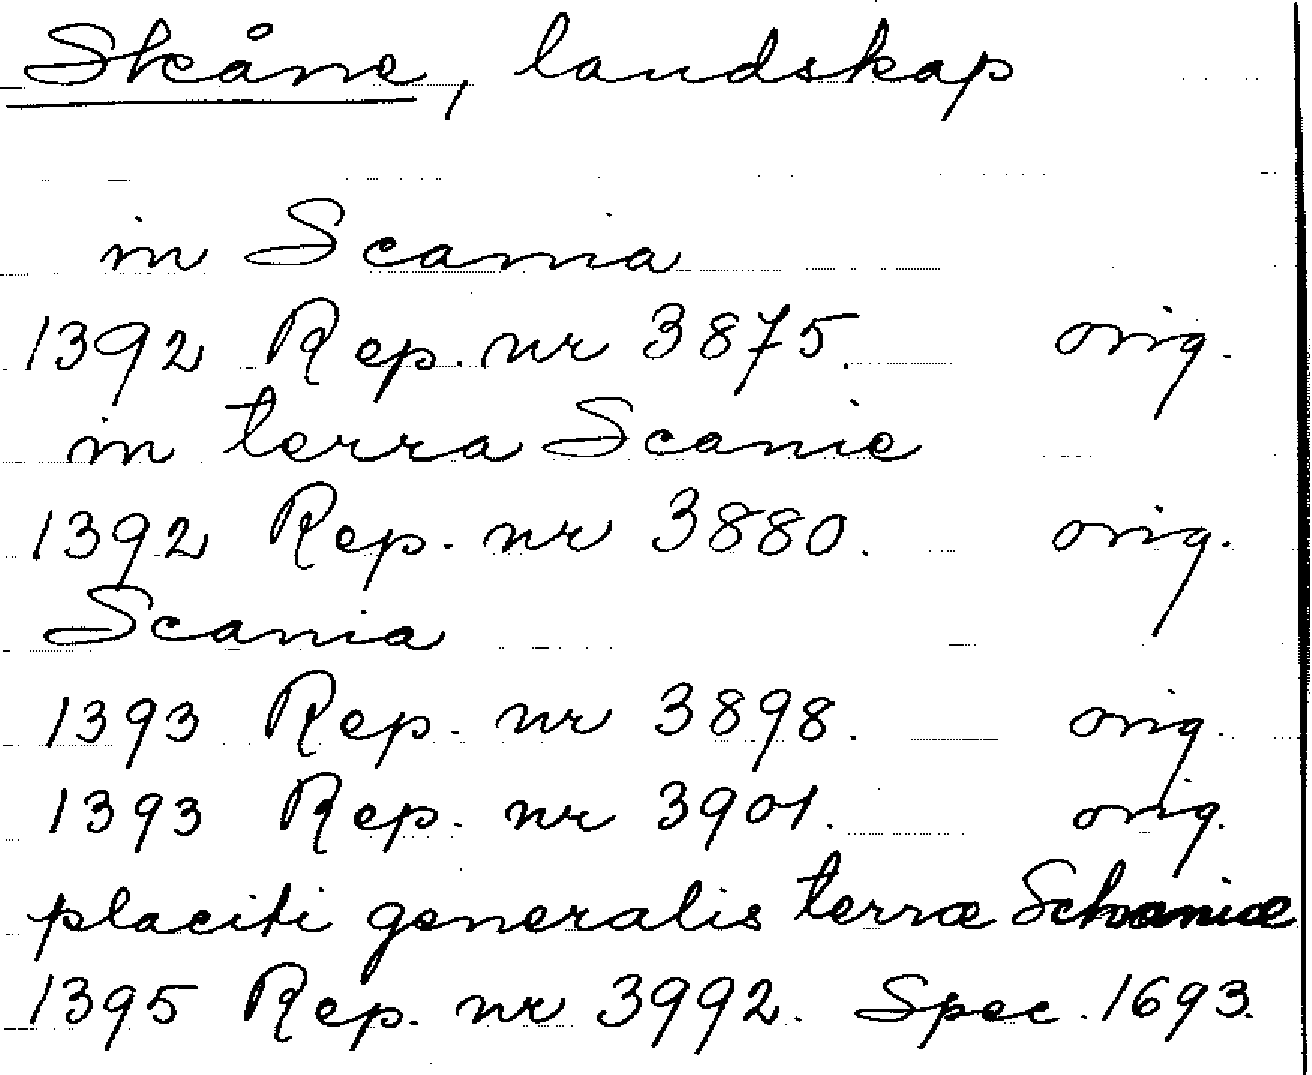 Skåne, landskap
in Scania
1392 Rep. nr 3875. orig.
in terra Scanie
1392 Rep. nr 3880. orig.
Scania
1393 Rep. nr 3898. orig.
1393 Rep. nr 3901. orig.
placiti generalis terræ Schaniæ
1395 Rep. nr 3992. Spec. 1693.